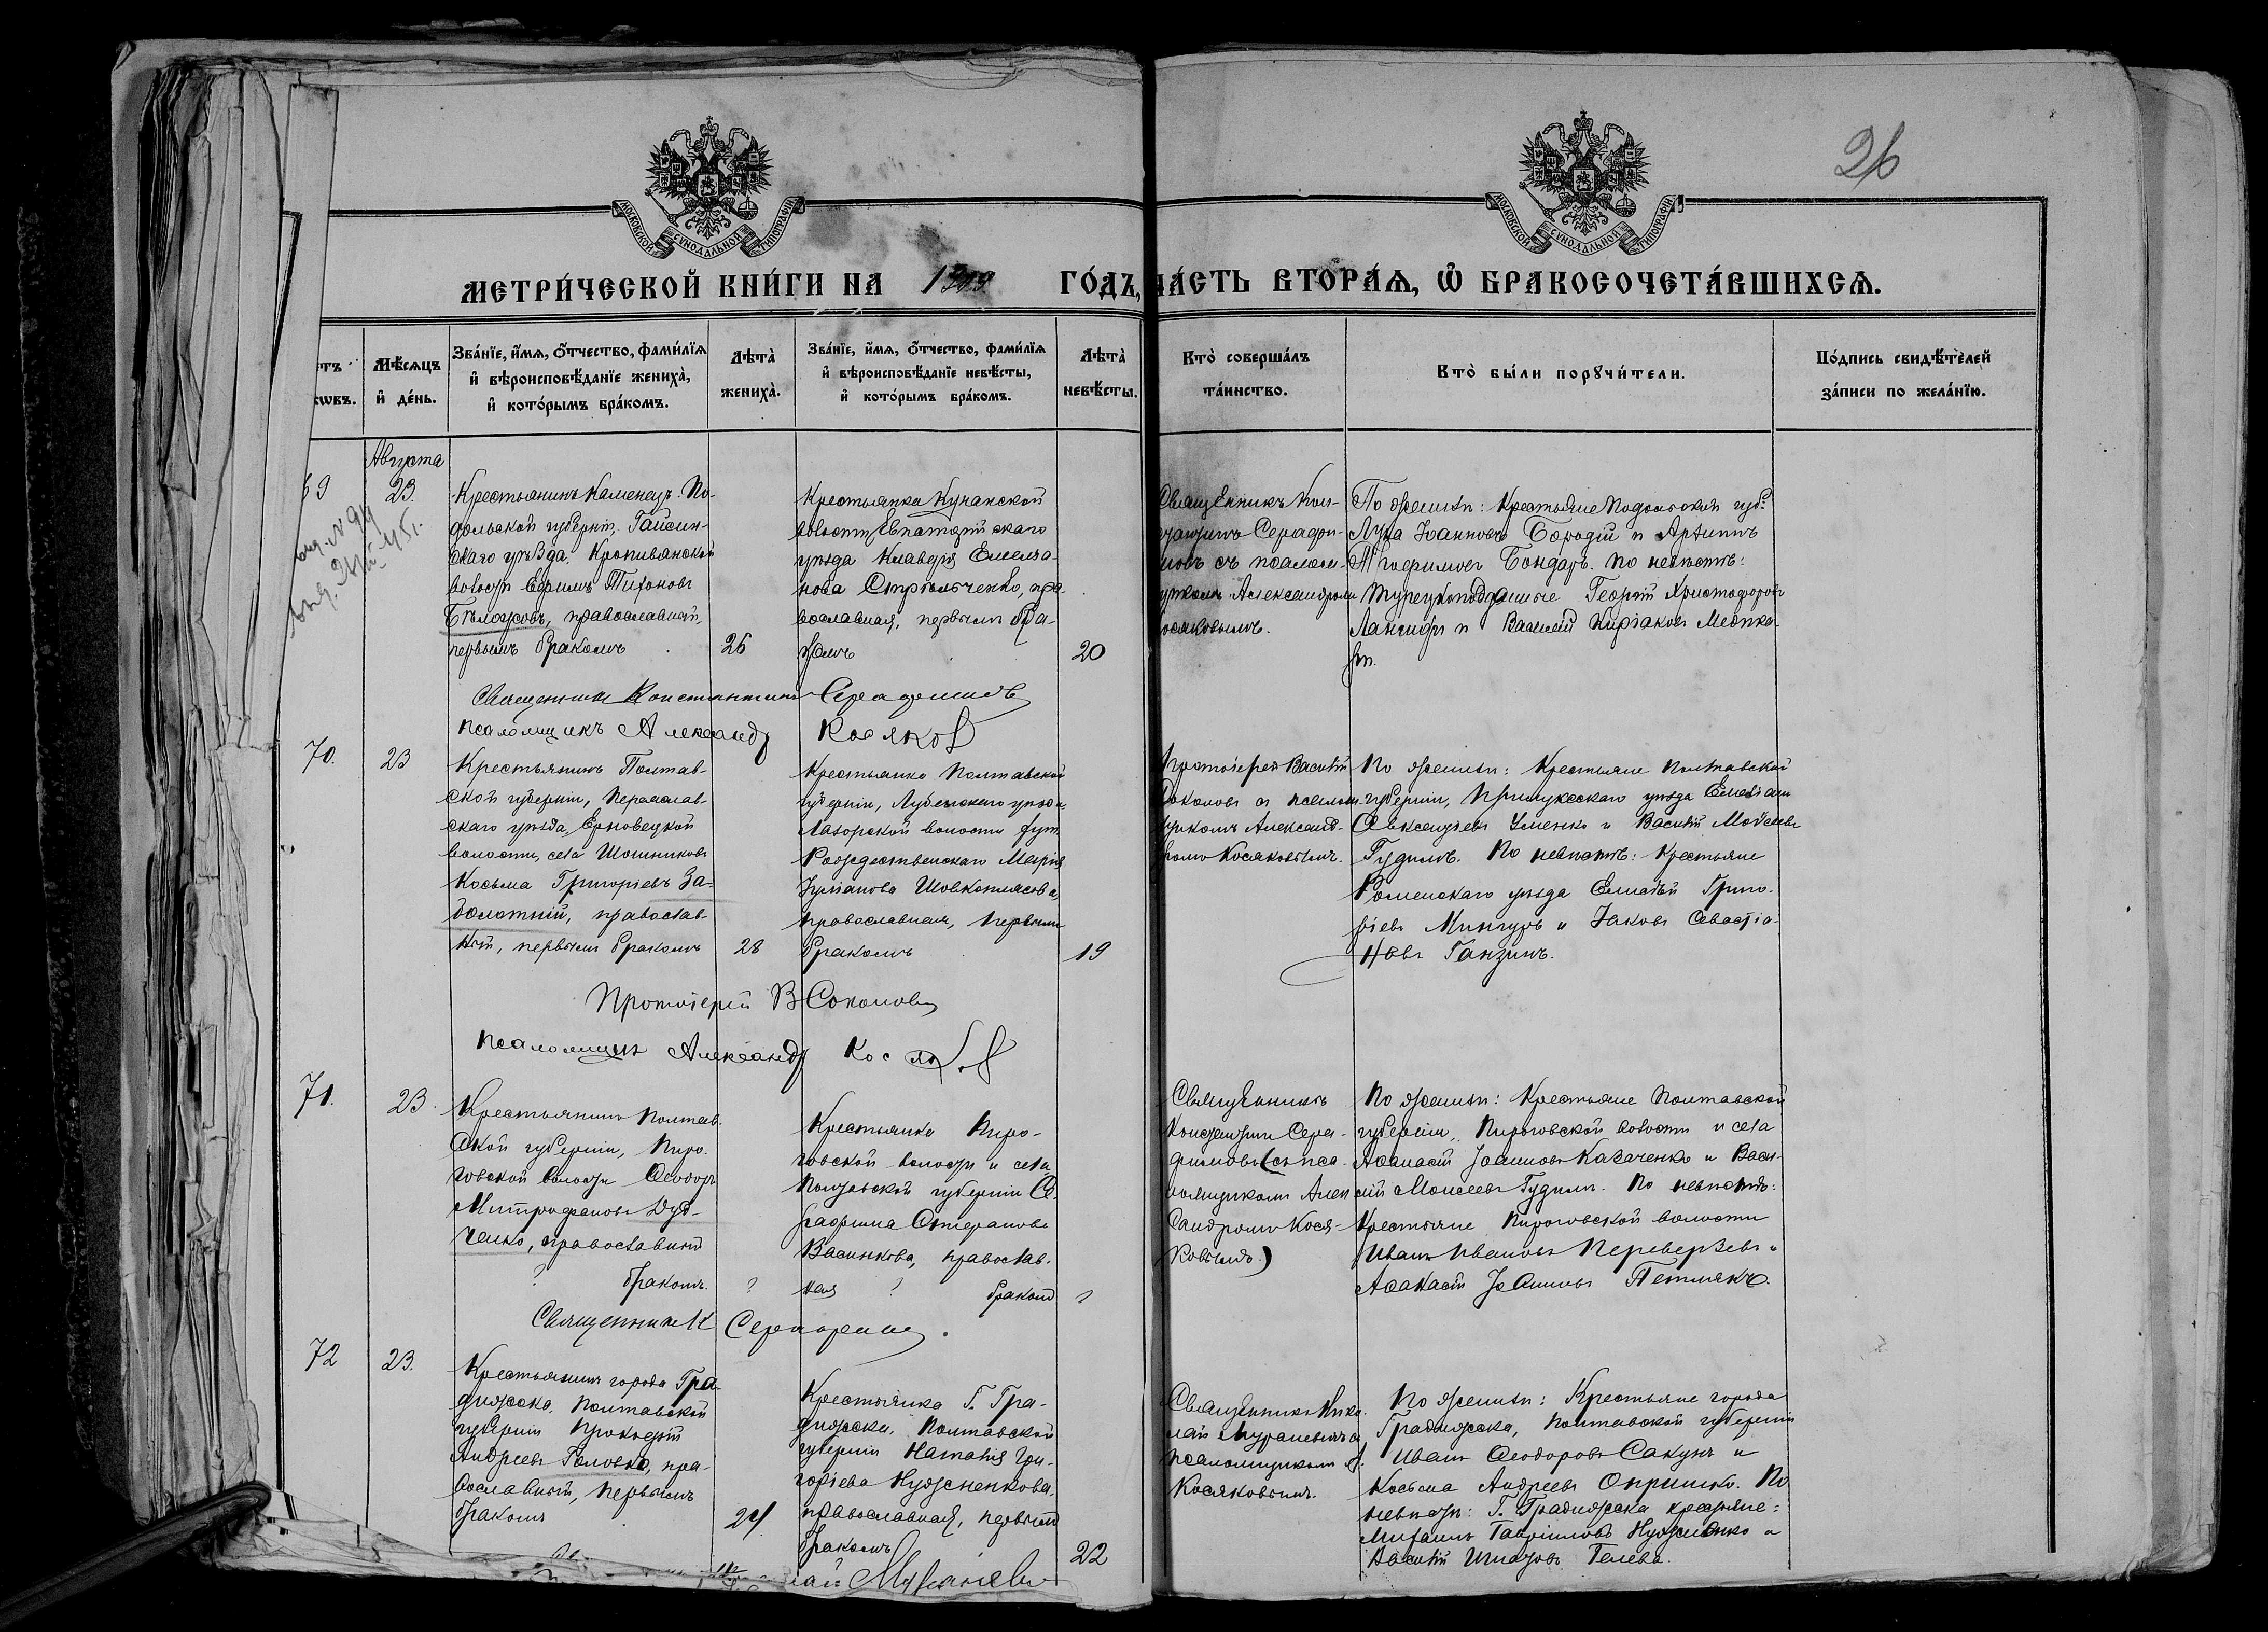 26
МОСКОВСКОЙ СУНОДАЛЬНОЙ ТИПОГРАФІИ
МОСКОВСКОЙ СУНОДАЛЬНОЙ ТИПОГРАФІИ
МЕТРИ́ЧЕСКОЙ КНИ́ГИ НА 1919 ГО́ДЪ, ЧА́СТЬ ВТОРА́Ѧ, Ѽ БРАКОСОЧЕТА́ВШИХСѦ.
Мѣ́сѧцъ и҆ де́нь.
Зва́нїе, и҆́мѧ, ѻ҆́тчество, фами́лїѧ
и҆ вѣроисповѣ́данїе жениха̀,
и҆ кото́рымъ бра́комъ.
Лѣта̀
жениха̀.
Зва́нїе, и҆́мѧ, ѻ҆́тчество, фами́лїѧ
и҆ вѣроисповѣ́данїе невѣ́сты,
и҆ кото́рымъ бра́комъ.
Лѣта̀
невѣ́сты.
Кто̀ соверша́лъ
та́инство.
Кто̀ бы́ли порꙋчи́тели.
По́дпись свидѣ́телей
за́писи по жела́нїю.
Августа
69
23.
Крестьянинъ Каменецъ-По-
дольской губерніи, Гайсин-
скаго уѣзда, Кропивянской
волости Ефимъ Тихоновъ
Бѣлоусовъ, православный,
первымъ бракомъ
26
Крестьянка Кучанской
волости Евпаторійскаго
уѣзда Клавдія Емелья-
нова Стрѣльченко, пра-
вославная, первымъ бра-
комъ
20
Священникъ Кон-
стантинъ Серафи-
мовъ съ псалом-
щикомъ Александромъ
Косяковымъ.
По женихѣ: Крестьяне Подольской губ.
Лука Іоанновъ Бородій и Артемъ
Трофимовъ Бондарь. По невѣстѣ:
Турецкоподданные Георгій Христофоровъ
и Василій Киріаковъ
Священникъ Константинъ Серафимовъ
Псаломщикъ Александръ Косяковъ
70.
23
Крестьянинъ Полтав-
ской губерніи, Переяслав-
скаго уѣзда, Ерковецкой
волости, села Шошниковъ
Косьма Григоріевъ За-
болотній, православ-
ный, первымъ бракомъ
28
Крестьянка Полтавской
губерніи, Лубенскаго уѣзда
Лазорской волости хут.
Рождественскаго Марія
Шовкоплясова,
православная, первымъ
бракомъ
19
Протоіерей Василій
Соколовъ съ псалом-
щикомъ Александ-
ромъ Косяковымъ.
По женихѣ: Крестьяне Полтавской
губерніи, Прилукскаго уѣзда Емеліанъ
Алексѣевъ Усенко и Василій Моисеевъ
Гудимъ. По невѣстѣ: Крестьяне
Роменскаго уѣзда Елисей Григо-
ріевъ и Іаковъ Севастіа-
новъ Ганзинъ.
Протоіерей В Соколовъ
Псаломщикъ Александръ Косяковъ
71.
23.
Крестьянинъ Полтав-
ской губерніи, Пиро-
говской волости Ѳеодоръ
Митрофановъ Дуб-
ченко, православный
? бракомъ.
?
Крестьянка Пиро-
говской волости и села,
Полтавской губерніи
Стефанова
Васинкова, православ-
ная ? бракомъ
?
Священникъ
Константинъ Сера-
фимовъ (съ пса-
ломщикомъ Алек-
сандромъ Кося-
ковымъ.)
По женихѣ: Крестьяне Полтавской
губерніи, Пироговской волости и села
Аѳанасій Іоанновъ Казаченко и Васи-
лій Моисеевъ Гудимъ. По невѣстѣ:
Крестьяне Пироговской волости
Иванъ Ивановъ Переверзевъ и
Аѳанасій Іоанновъ
Священникъ Серафимовъ.
72
23.
Крестьянинъ города Гра-
дижска, Полтавской
губерніи Прокофій
Андреевъ Головко, пра-
вославный, первымъ
бракомъ
24
Крестьянка г. Гра-
дижска, Полтавской
губерніи Наталія Гри-
горіева Нужненкова,
православная, первымъ
бракомъ
22
Священникъ Нико-
лай Мураневичъ съ
псаломщикомъ А.
Косяковымъ.
По женихѣ: Крестьяне города
Градижска, Полтавской губерніи
Иванъ Ѳеодоровъ Сакунъ и
Косьма Андреевъ Опришко. По
невѣстѣ: Г. Градижска крестьяне:
Михаилъ Гавріиловъ Нужненко и
Василій Игнатовъ Гелева.